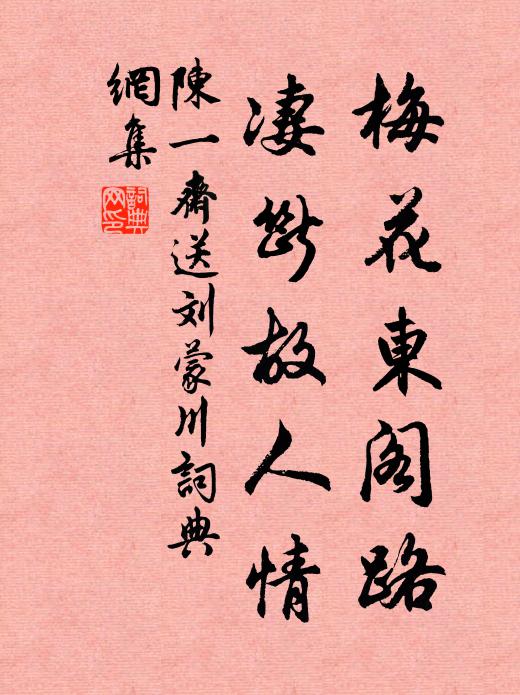 梅花東阁路
凄斷故人情
陳一齋送刘蒙川詞典
網集
詞典
网印